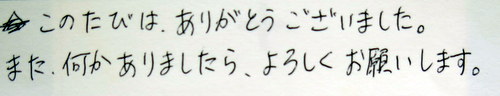 このたびは、ありがとうございました。
また、何かありましたら、よろしくお願いします。